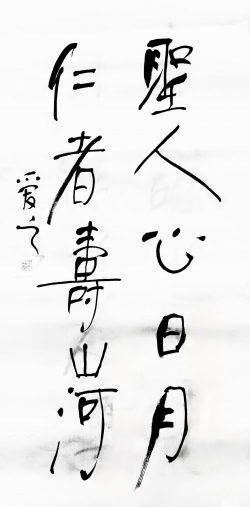 聖人心日月
仁者壽山河
爱之